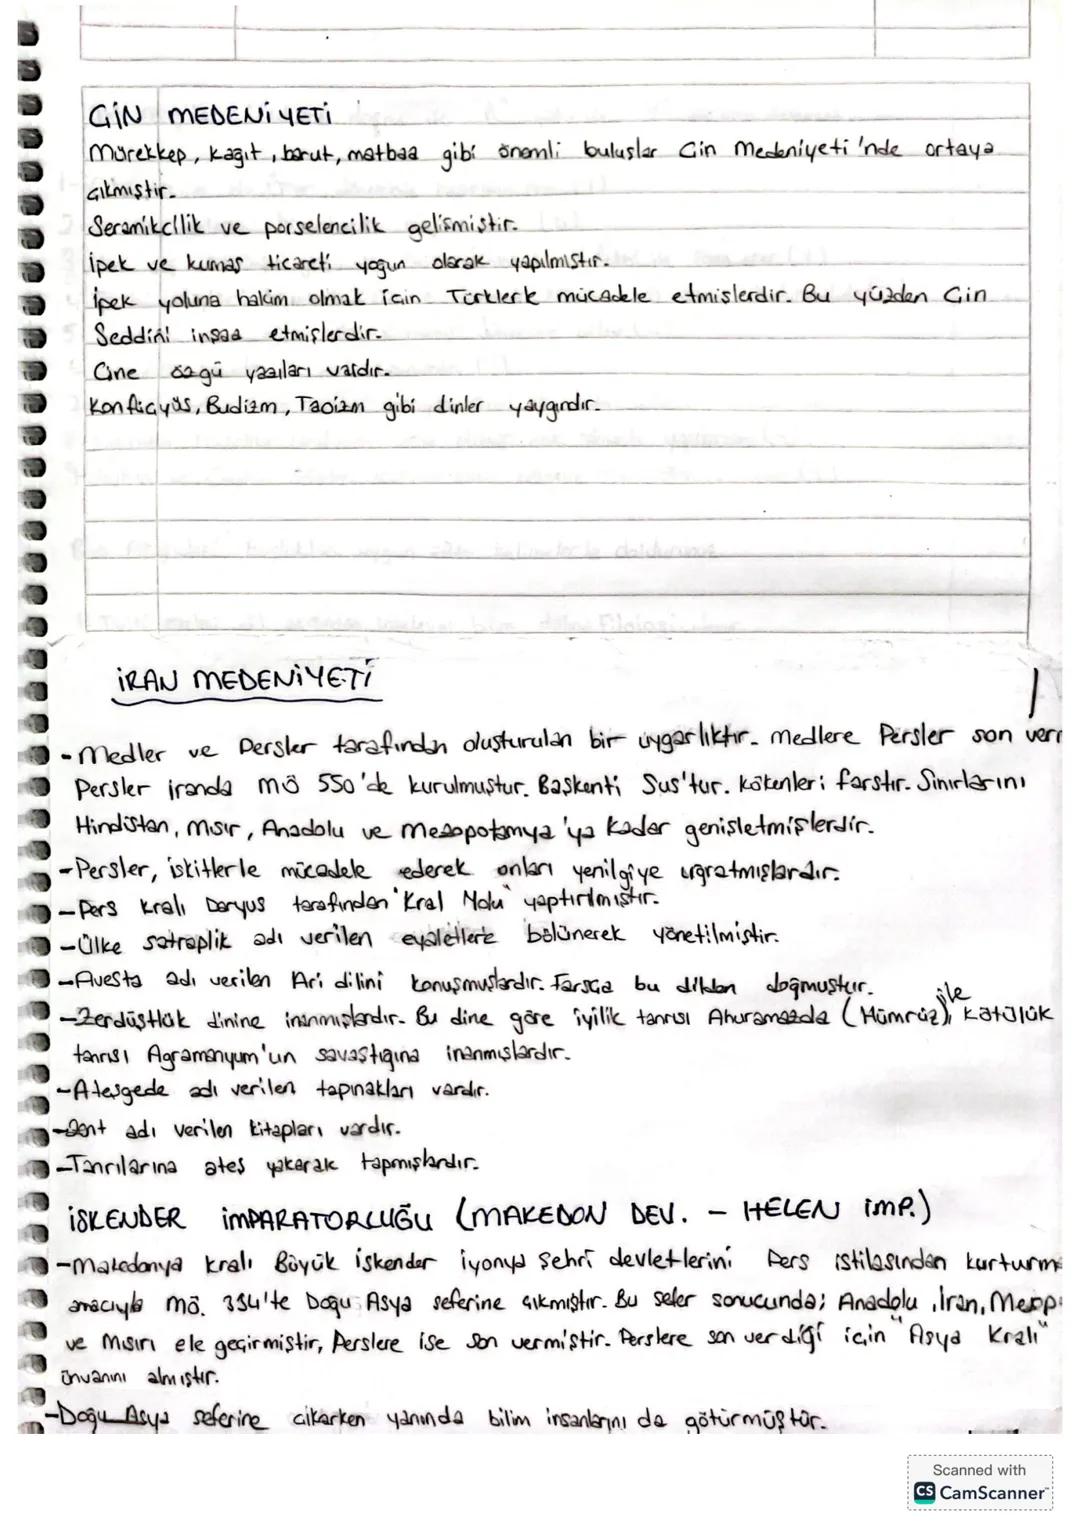 ÇİN MEDENİYETİ
Mürekkep, kağıt, barut, matbaa gibi önemli buluşlar Çin Medeniyeti'nde ortaya
çıkmıştır.
Seramikcilik ve porselencilik gelişmiştir.
İpek ve kumaş ticareti yoğun olarak yapılmıştır.
İpek yoluna hakim olmak için Türklerle mücadele etmişlerdir. Bu yüzden Çin
Seddini inşaa etmişlerdir.
Çine özgü yazıları vardır.
Konfüçyüs, Budizm, Taoizm gibi dinler yaygındır.
İRAN MEDENİYETİ
- Medler ve Persler tarafından oluşturulan bir uygarlıktır. medlere Persler son
Persler iranda MÖ 550'de kurulmuştur. Başkenti Sus'tur. kökenleri farstır. Sınırlarını
Hindistan, Mısır, Anadolu ve Mezopotamya'ya kadar genişletmişlerdir.
- Persler, iskitlerle mücadele ederek onları yenilgiye uğratmışlardır.
- Pers kralı Daryus tarafından "Kral Yolu" yaptırılmıştır.
- Ülke satraplık adı verilen eyaletlere bölünerek yönetilmiştir.
- Avesta adı verilen Ari dilini konuşmuşlardır. Farsça bu dilden doğmuştur.
- Zerdüştlük dinine inanmışlardır. Bu dine göre iyilik tanrısı Ahuramazda (Hümrüz) ile kötülük
tanrısı Agramanyum'un savaştığına inanmışlardır.
- Ateşgede adı verilen tapınakları vardır.
- Zent adı verilen kitapları vardır.
- Tanrılarına ateş yakarak tapmışlardır.
İSKENDER İMPARATORLUĞU (MAKEDON DEV. - HELEN İMP.)
- Makedonya kralı Büyük İskender İyonya şehri devletlerini Pers istilasından
amacıyla MÖ. 334'te Doğu Asya seferine çıkmıştır. Bu sefer sonucunda; Anadolu, İran,
ve Mısırı ele geçirmiştir, Perslere ise son vermiştir. Perslere son verdiği için "Asya Kralı"
ünvanını almıştır.
- Doğu Asya seferine çıkarken yanında bilim insanlarını da götürmüştür.
Scanned with
CS CamScanner